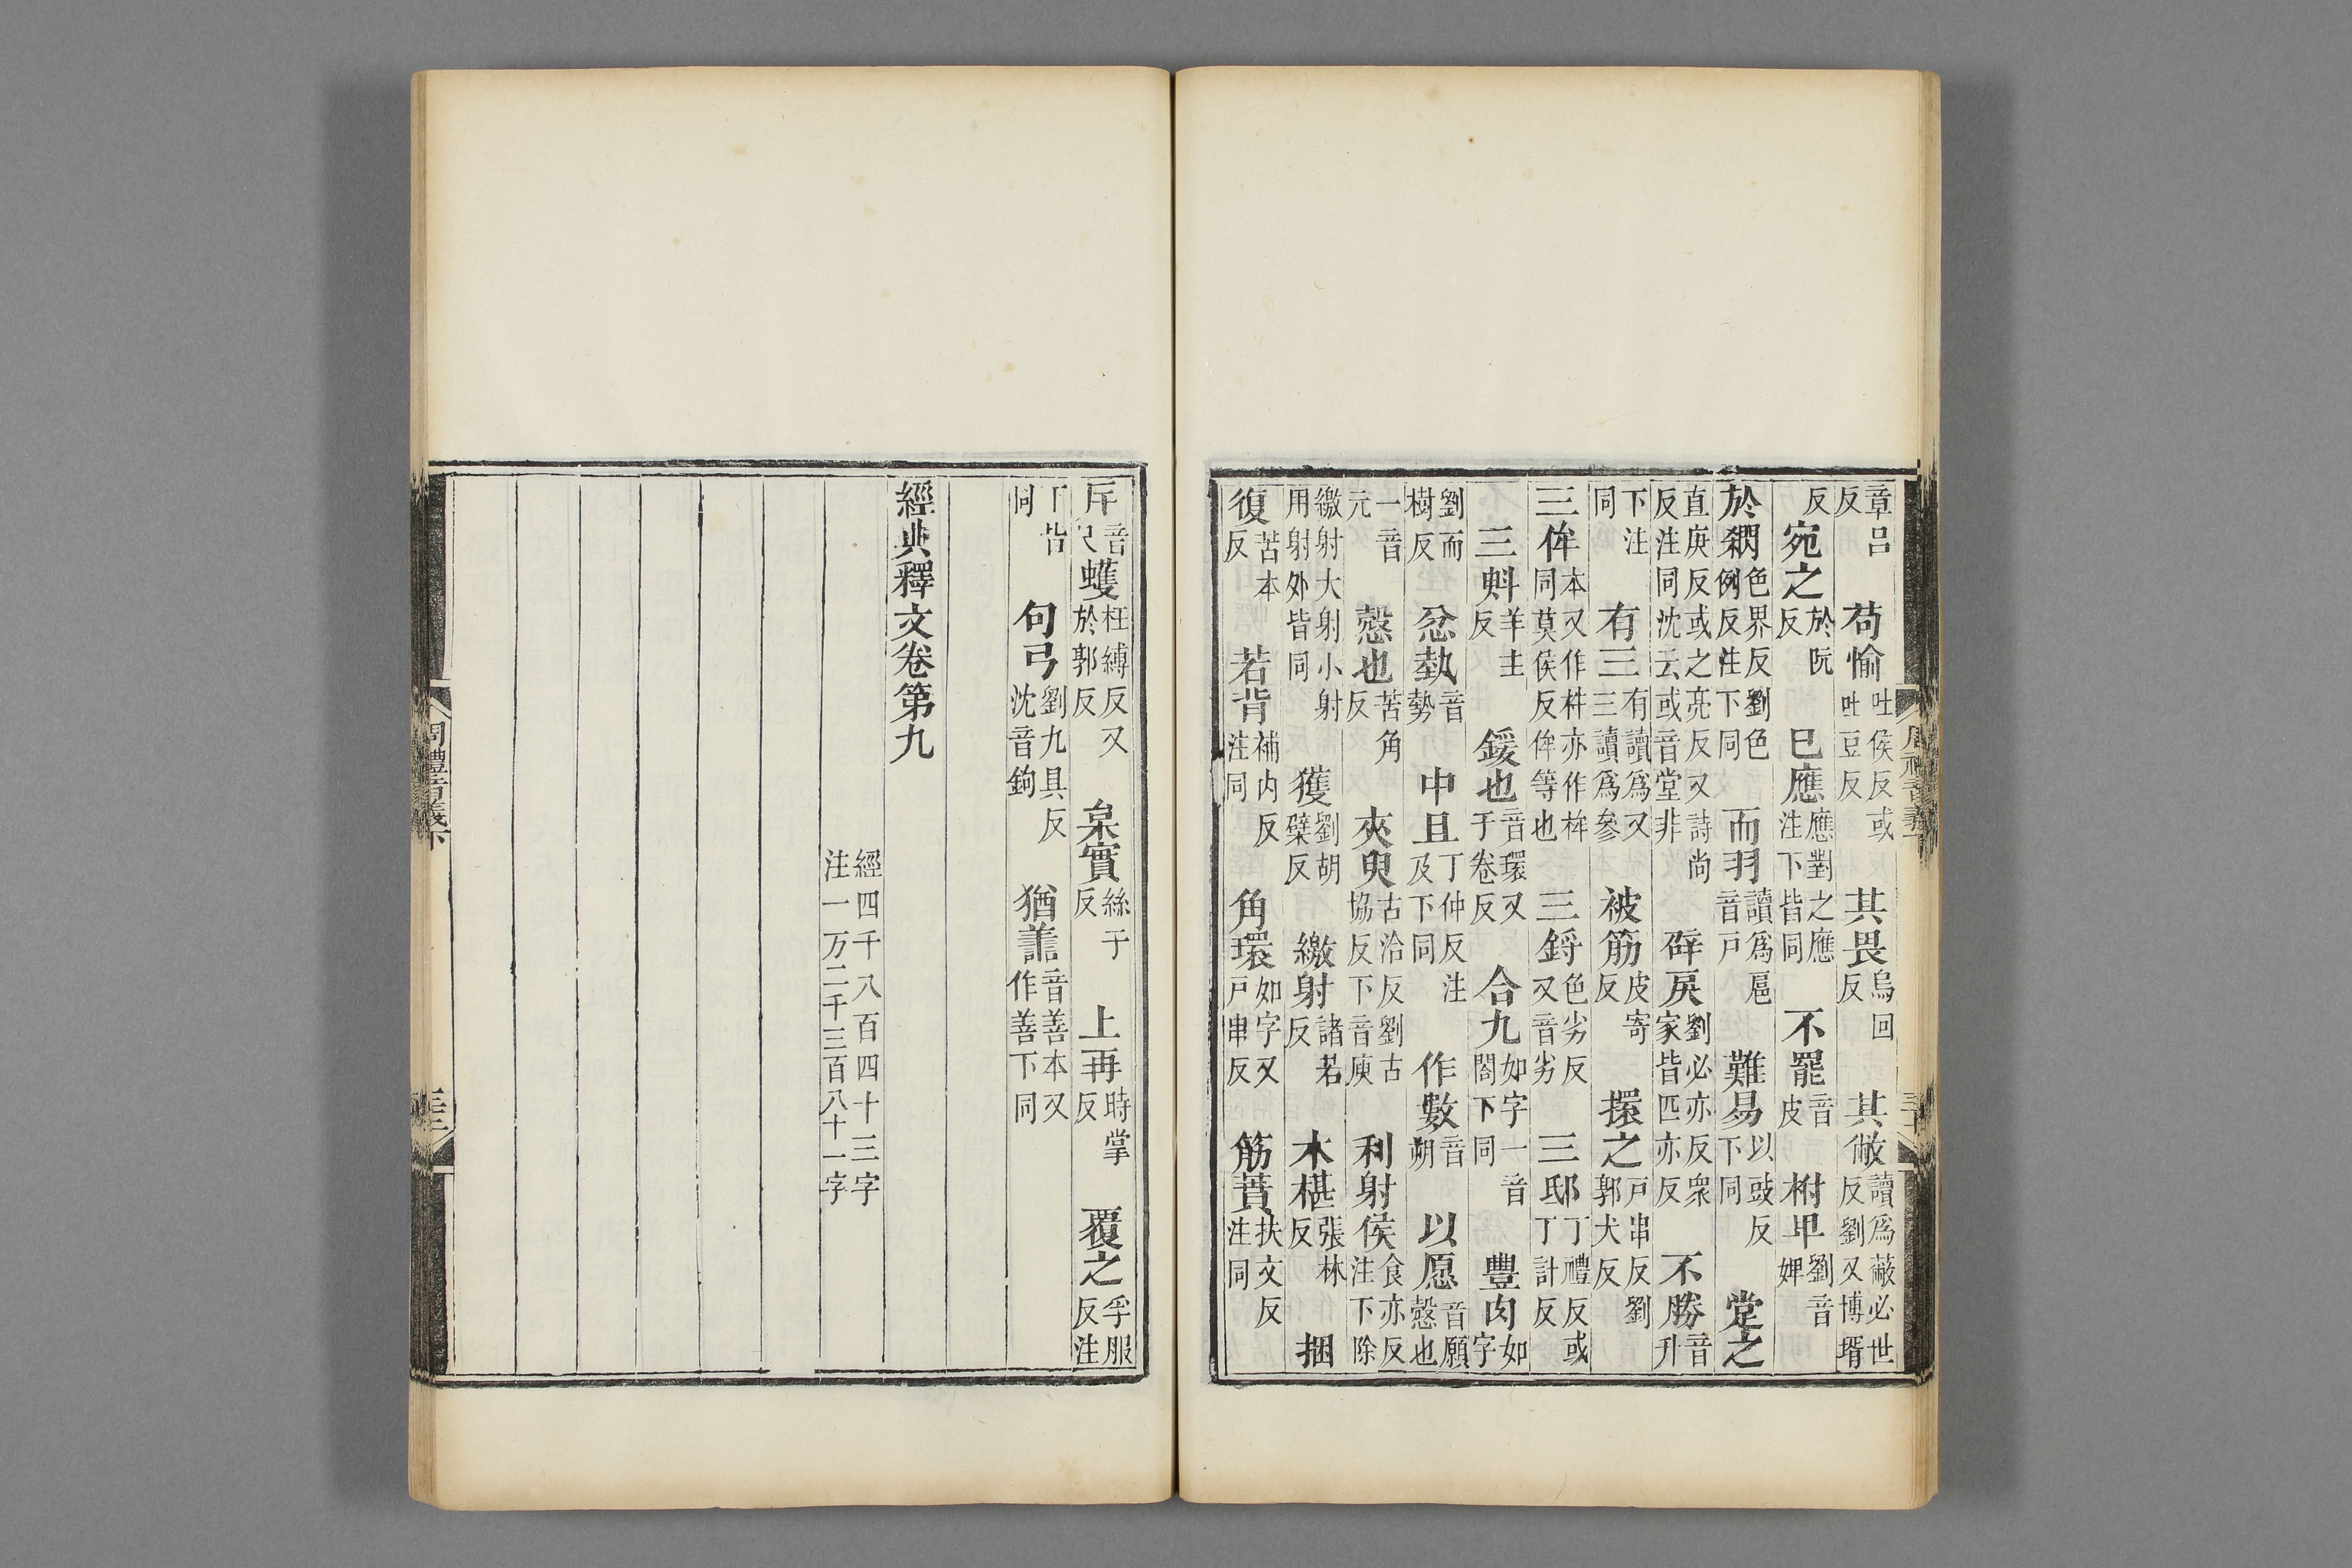 章呂反 苟愉吐侯反或吐豆反 其畏烏回反 其敝讀爲蔽必世反劉又博壻
反 宛之於阮反 已應應對之應注下皆同 不罷音皮 柎𤰞劉音婢
於𥻦色界反劉色例反注下同 而羽讀爲扈音戶 難易以豉反下同 堂之
直庚反或之亮反又詩尚反注同沈云或音堂非 辟戾劉必亦反衆家皆匹亦反 不勝音升
下注同 有三有讀爲又三讀爲參 被筋皮寄反 擐之戶串反劉郭犬反
三侔本又作桙亦作桙同莫侯反侔等也 三鋝色劣反又音劣 三邸丁禮反或丁計反
三㪺羊主反 鍰也音環又于卷反 合九如字一音閤下同 豐肉如字
劉而樹反 忿埶音勢 中且丁仲反注及下同 作數音朔 以愿音願慤也
一音元 慤也苦角反 夾臾古洽反劉古協反下音庾 利射侯食亦反注下除
繳射大射小射用射外皆同 獲劉胡檗反 繳射諸若反 木椹張林反 捆
復苦本反 若背補内反注同 角環如字又戶串反 筋蕡扶文反注同
周禮音義下
斥音尺 蠖枉縛反又於郭反 枲實絲子反 上再時掌反 覆之孚服反注
下皆同 句弓劉九具反沈音鉤 猶譱音善本又作善下同
經典釋文卷第九
經四千八百四十三字
注一万二千三百八十一字
周禮音義下